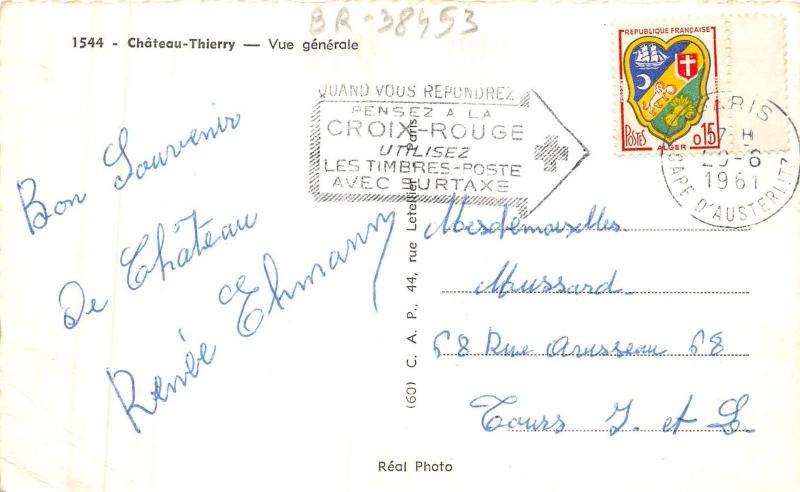 BR-38453
1544 - Château-Thierry — Vue générale
QUAND VOUS REPONDREZ
PENSEZ A LA
CROIX-ROUGE
UTILISEZ
LES TIMBRES-POSTE
AVEC SURTAXE
REPUBLIQUE FRANÇAISE
POSTES
ALGER
0,15
PARIS
17 H
6
1961
GARE D'AUSTERLITZ
Bon Souvenir
De Château
Renée Ehmann
(60) C. A. P., 44, rue Letellier, Paris
Mesdemoiselles
Mussard.
68 Rue Arusseau 68
Tours I. et L.
Réal Photo